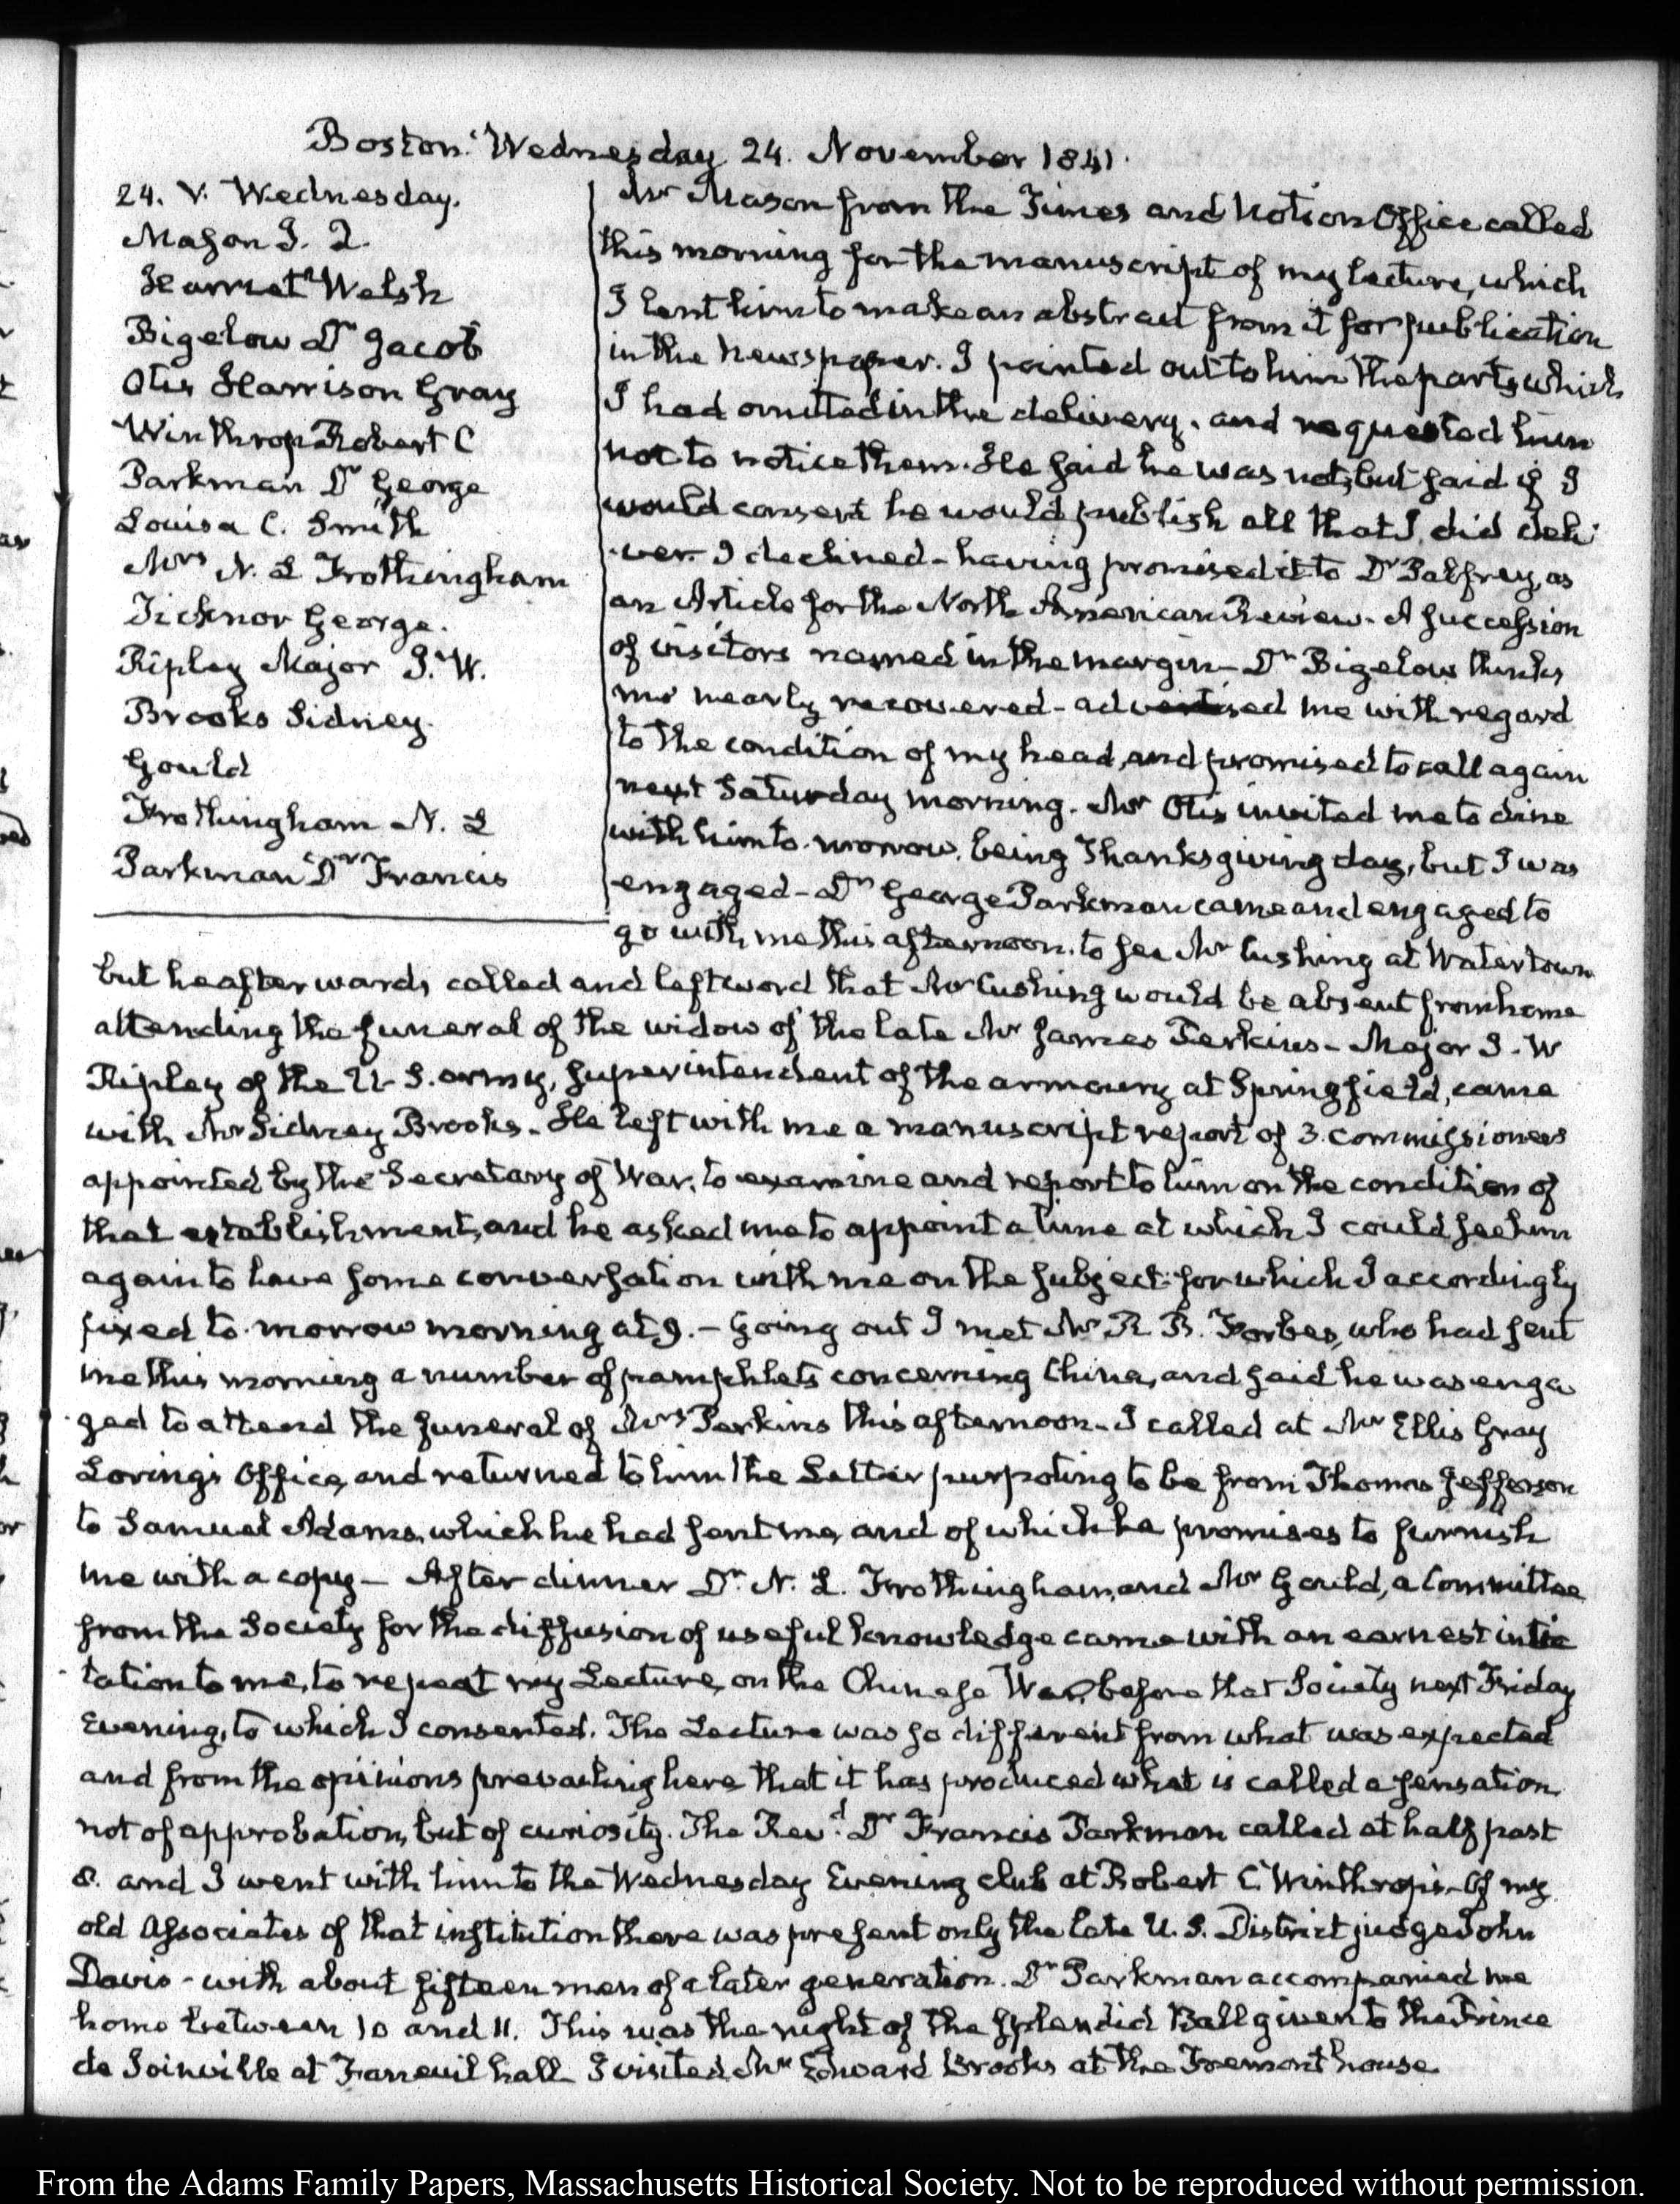 Boston. Wednesday 24. November 1841.
24. V. Wednesday.
Mason I. Q.
Harriet Welsh
Bigelow Dr Jacob
Otis Harrison Gray
Winthrop Robert C
Parkman Dr George
Louisa C. Smith
Mrs N. L Frothingham
Ticknor George.
Ripley Major J. W.
Brooks Sidney.
Gould
Frothingham N. L
Parkman Dr Francis
Mr Mason from the Times and Notion Office called
this morning for the manuscript of my lecture, which
I lent him to make an abstract from it for publication
in the Newspaper. I pointed out to him the parts which
I had omitted in the delivery. and requested him
not to notice them. He said he was not, but said if I
would consent he would publish all that I did deli
ver. I declined - having promised it to Dr Palfrey, as
an Article for the North American Review. A succession
of visitors named in the margin - Dr Bigelow thinks
me nearly recovered - advertised me with regard
to the condition of my head, and promised to call again
next Saturday morning. Mr Otis invited me to dine
with him to-morrow, being Thanksgiving day, but I was
engaged - Dr George Parkman came and engaged to
go with me this afternoon. to see Mr Cushing at Watertown
but he afterwards called and left word that Mr Cushing would be absent from home
attending the funeral of the widow of the late Mr James Perkins - Major J. W
Ripley of the U S. army, superintendent of the armoury at Springfield, came
with Mr Sidney Brooks. He left with me a manuscript report of 3 commissioners
appointed by the Secretary of War, to examine and report to him on the condition of
that establishment, and he asked me to appoint a time at which I could see him
again to have some conversation with me on the subject: for which I accordingly
fixed to-morrow morning at 9. - Going out I met Mr R B. Forbes, who had sent
me this morning a number of pamphlets concerning China, and said he was enga
ged to attend the funeral of Mrs Perkins this afternoon - I called at Mr Ellis Gray
Loring's Office, and returned to him the Letter purpoting to be from Thomas Jefferson
to Samuel Adams, which he had sent me, and of which he promises to furnish
me with a copy - After dinner Dr. N. L. Frothingham, and Mr Gould, a Committee
from the Society for the diffusion of useful knowledge came with an earnest
tation to me, to repeat my Lecture, on the Chinese War, before that Society next Friday
Evening, to which I consented. The Lecture was so different from what was expected
and from the opinions prevailing here that it has produced what is called a sensation
not of approbation, but of curiosity. The Revd. Dr Francis Parkman called at half past
8. and I went with him to the Wednesday Evening club at Robert C. Winthrop's - Of my
old Associates of that institution there was present only the late U. S. District judge John
Davis - with about fifteen men of a later generation. Dr Parkman accompanied me
home between 10 and 11. This was the night of the splendid Ball given to the Prince
de Joinville at Faneuil hall I visited Mr Edward Brooks at the Tremont house
From the Adams Family Papers, Massachusetts Historical Society. Not to be reproduced without permission.